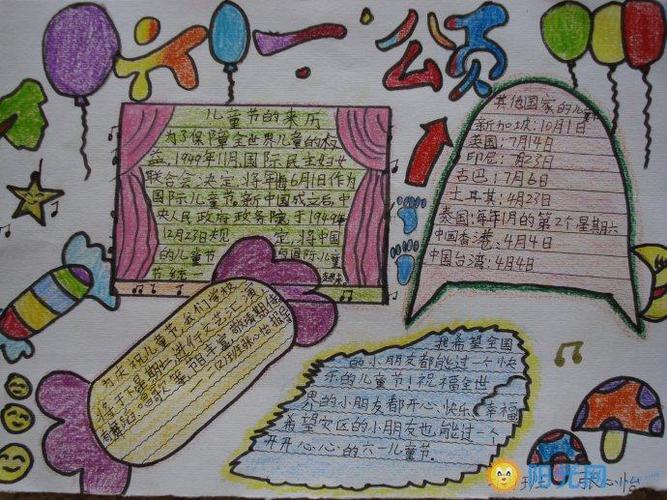 六一颂
儿童节的来历
为了保障全世界儿童的权
益,1949年11月,国际民主妇女
联合会决定,将每年6月1日作为
国际儿童节。新中国成立后,中
央人民政府政务院于1949年
12月23日规定,将中国
的儿童节与国际儿童
节统一起来。
其他国家的儿童
新加坡:10月1日
美国:7月14日
印尼:7月23日
古巴:7月6日
土耳其:4月23日
泰国:每年1月的第2个星期六
中国香港:4月4日
中国台湾:4月4日
为庆祝儿童节,我们学校
将于下星期三进行文艺汇演,
有舞蹈、唱歌等,阳丰富,敬请期待。
我希望全国
的小朋友都能过一个快
乐的儿童节!祝福全世
界的小朋友都开心、快乐、幸福
希望灾区的小朋友也能过一个
开开心心的六一儿童节.
阳光网